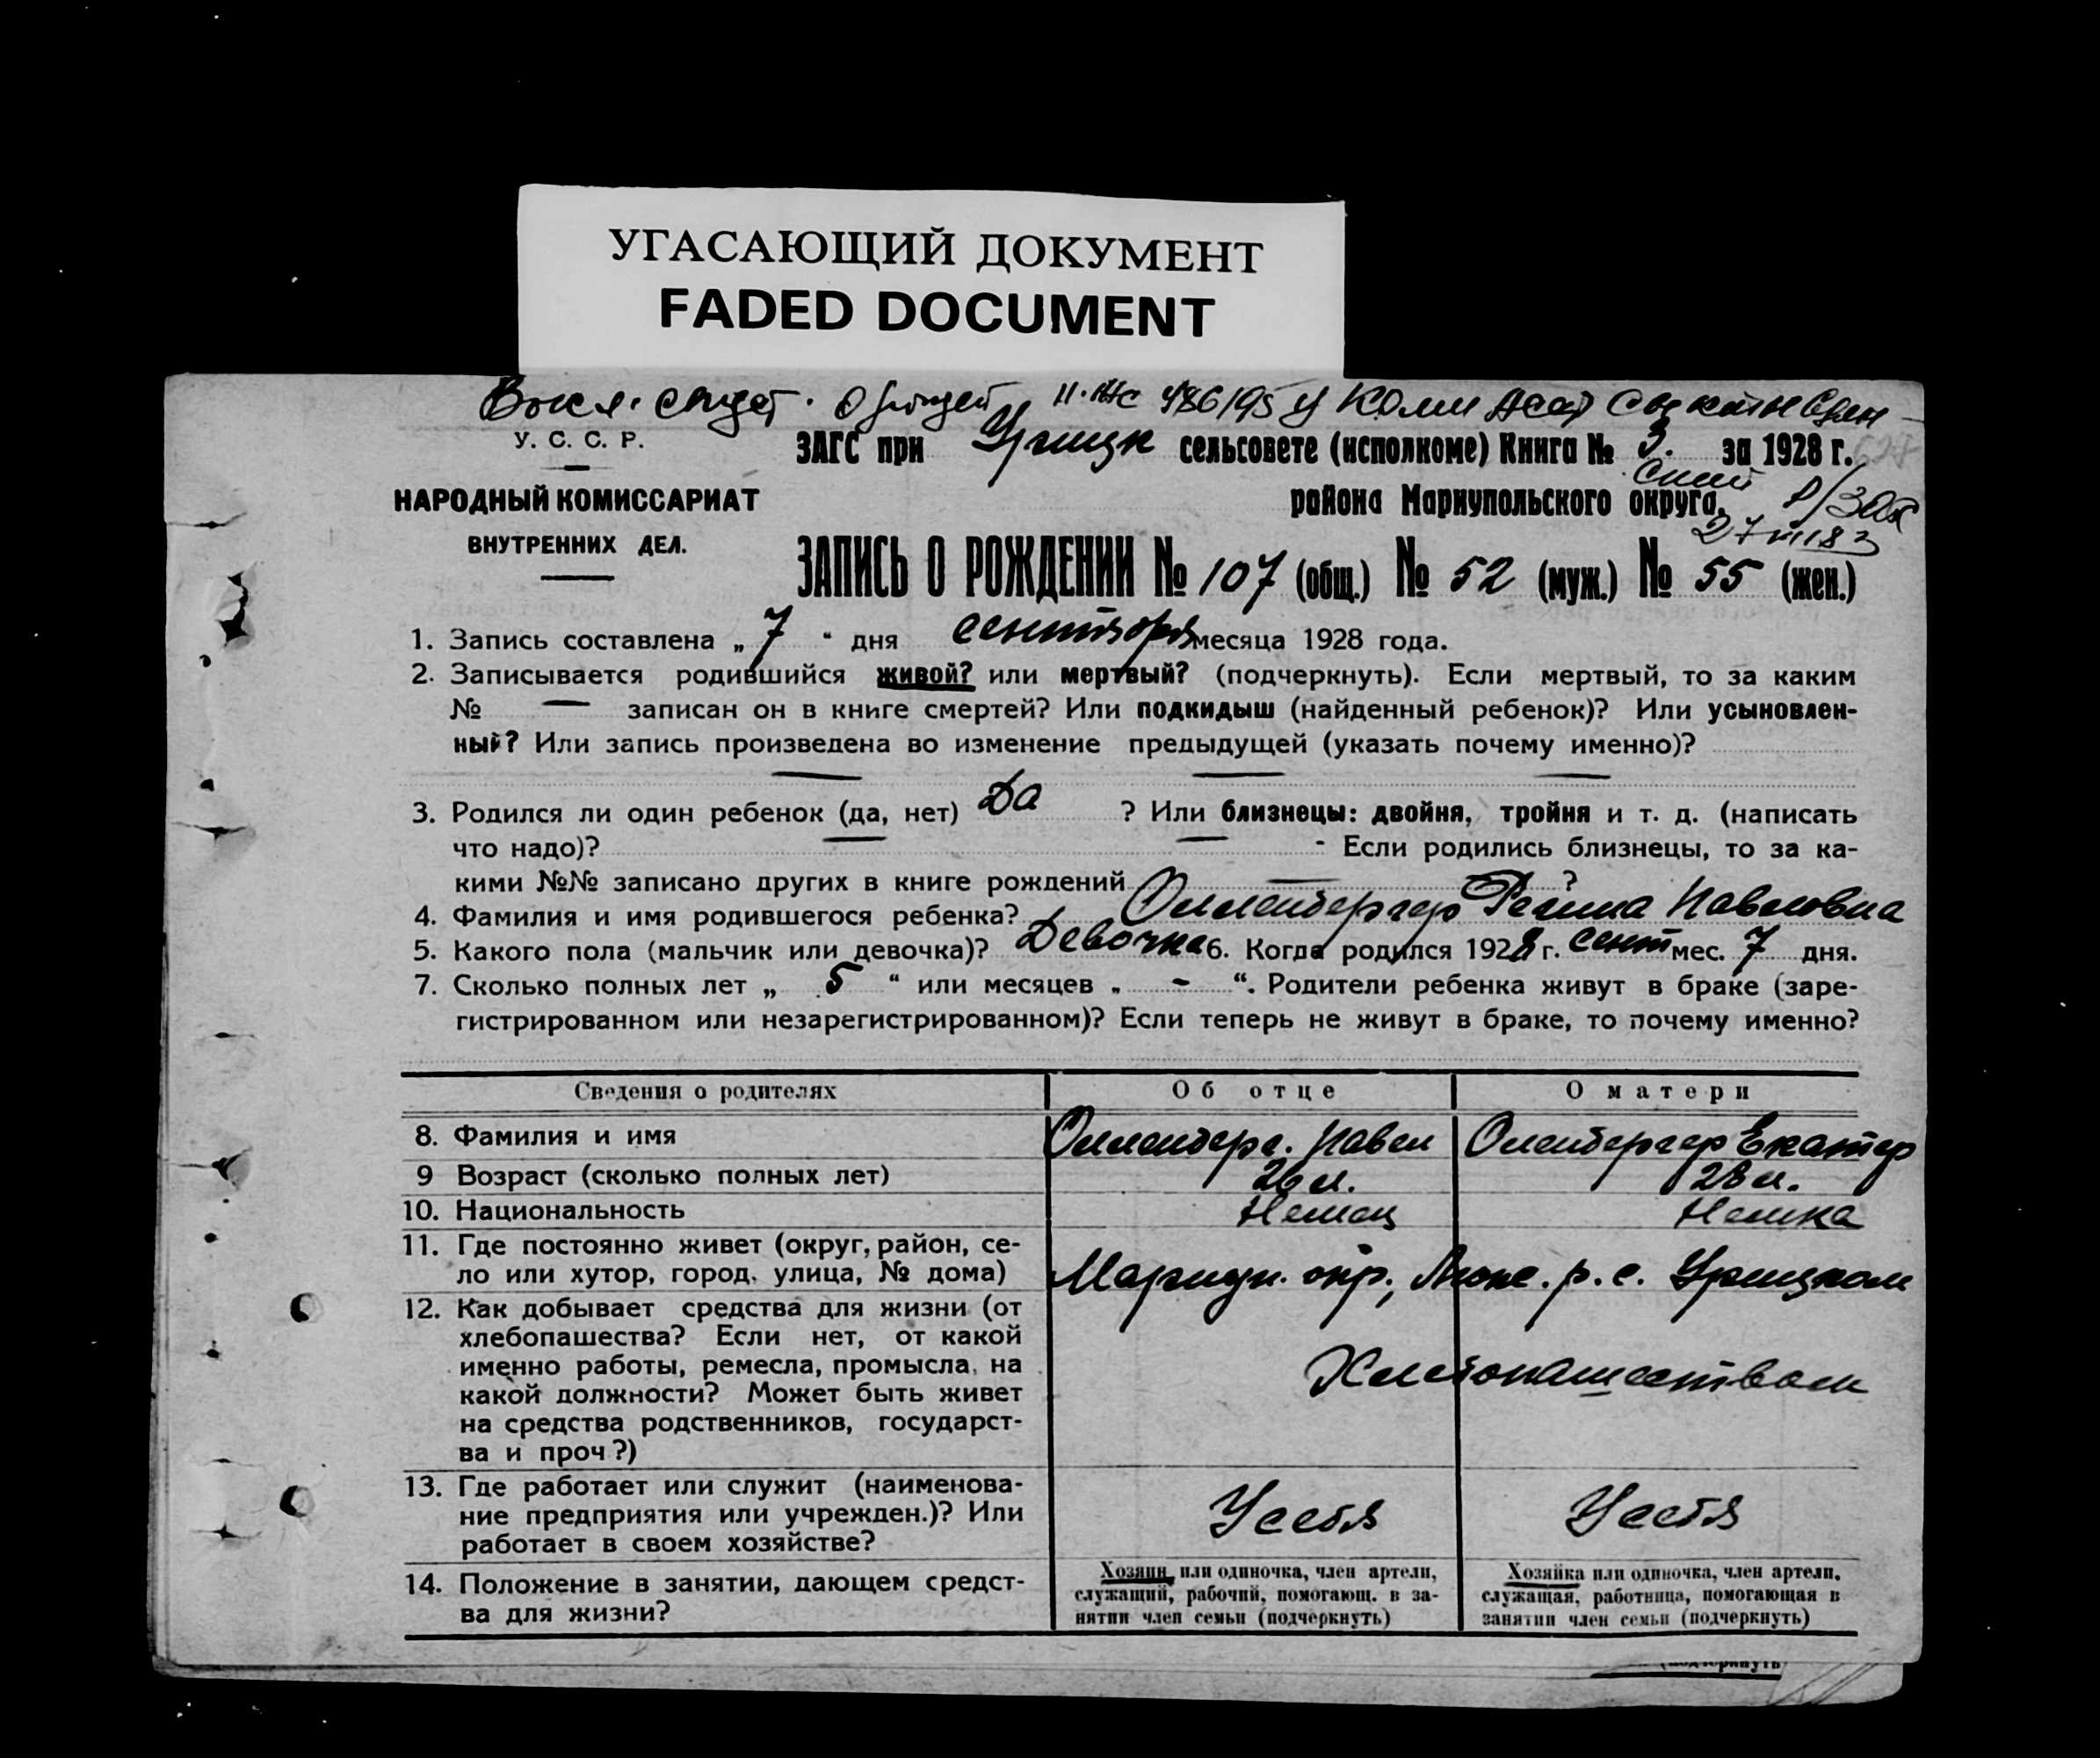 УГАСАЮЩИЙ ДОКУМЕНТ
FADED DOCUMENT
У. С. С. Р.
ЗАГС при Урицк сельсовете (исполкоме) Книга № 3. за 1928 г.
НАРОДНЫЙ КОМИССАРИАТ
района Мариупольского округа.
ВНУТРЕННИХ ДЕЛ.
ЗАПИСЬ О РОЖДЕНИИ № 107 (общ.) № 52 (муж.) № 55 (жен.)
1. Запись составлена „ 7 “ дня сентября месяца 1928 года.
2. Записывается родившийся живой? или мертвый? (подчеркнуть). Если мертвый, то за каким
№ — записан он в книге смертей? Или подкидыш (найденный ребенок)? Или усыновлен-
ный? Или запись произведена во изменение предыдущей (указать почему именно)?
— — —
3. Родился ли один ребенок (да, нет) Да ? Или близнецы: двойня, тройня и т. д. (написать
что надо)? — — - Если родились близнецы, то за ка-
кими №№ записано других в книге рождений — ?
4. Фамилия и имя родившегося ребенка? Олленбергер Регина Павловна
5. Какого пола (мальчик или девочка)? Девочка 6. Когда родился 1928 г. сент мес. 7 дня.
7. Сколько полных лет „ 5 “ или месяцев „ - “. Родители ребенка живут в браке (заре-
гистрированном или незарегистрированном)? Если теперь не живут в браке, то почему именно?
Сведения о родителях Об отце О матери
8. Фамилия и имя Олленберг. Павел Оленбергер Екатер
9 Возраст (сколько полных лет) 26 л. 28 л.
10. Национальность Немец Немка
11. Где постоянно живет (округ, район, се-
ло или хутор, город, улица, № дома) Мариуп. окр., Люкс. р. с. Урицком
12. Как добывает средства для жизни (от
хлебопашества? Если нет, от какой
именно работы, ремесла, промысла, на
какой должности? Может быть живет
на средства родственников, государст-
ва и проч?)
Хлебопашеством
13. Где работает или служит (наименова-
ние предприятия или учрежден.)? Или
работает в своем хозяйстве?
У себя У себя
14. Положение в занятии, дающем средст-
ва для жизни?
Хозяин или одиночка, член артели,
служащий, рабочий, помогающ. в за-
нятии член семьи (подчеркнуть)
Хозяйка или одиночка, член артели,
служащая, работница, помогающая в
занятии член семьи (подчеркнуть)